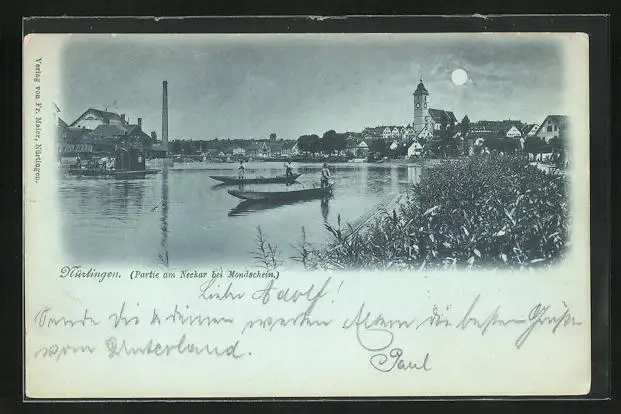 Verlag von Fr. Maier, Nürtingen.
Nürtingen. (Partie am Neckar bei Mondschein.)
Lieber Adolf!
Sende dir & deinen werten Altern die besten Grüße
vom Unterland.
Paul